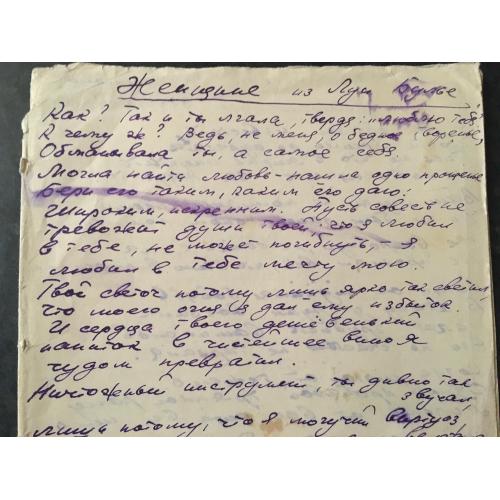 Женщине из Луи Буйе
Как? Так и ты лгала, твердя: "люблю тебя"
К чему ж? Ведь, не меня, о бедное творенье,
Обманывала ты, а самое себя.
Могла найти любовь - нашла одно прощенье
Бери его таким, каким его даю:
Широким, искренним. Пусть совесть не
тревожит души твоей: что я любил
в тебе, не может погибнуть, - я
любил в тебе мечту мою.
Твой светоч потому лишь ярко так светил,
что моего огня я дал ему избыток.
И сердца твоего дешевенький
напиток в чистейшее вино я
чудом превратил.
Ничтожный инструмент, ты дивно так
звучал,
лишь потому, что я могучий виртуоз,